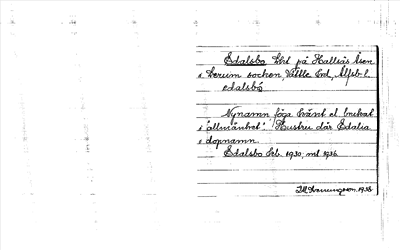 Edalsbo Lht på Hallsås Åsen
i Lerum socken, Vättle hd, Älfsb. l.
edalsbo
Nynamn föga känt el brukat
i "allmänhet". Hustru där Edalia
i dopnamn.
Edalsbo Lrb. 1930, mt 1936.
1938